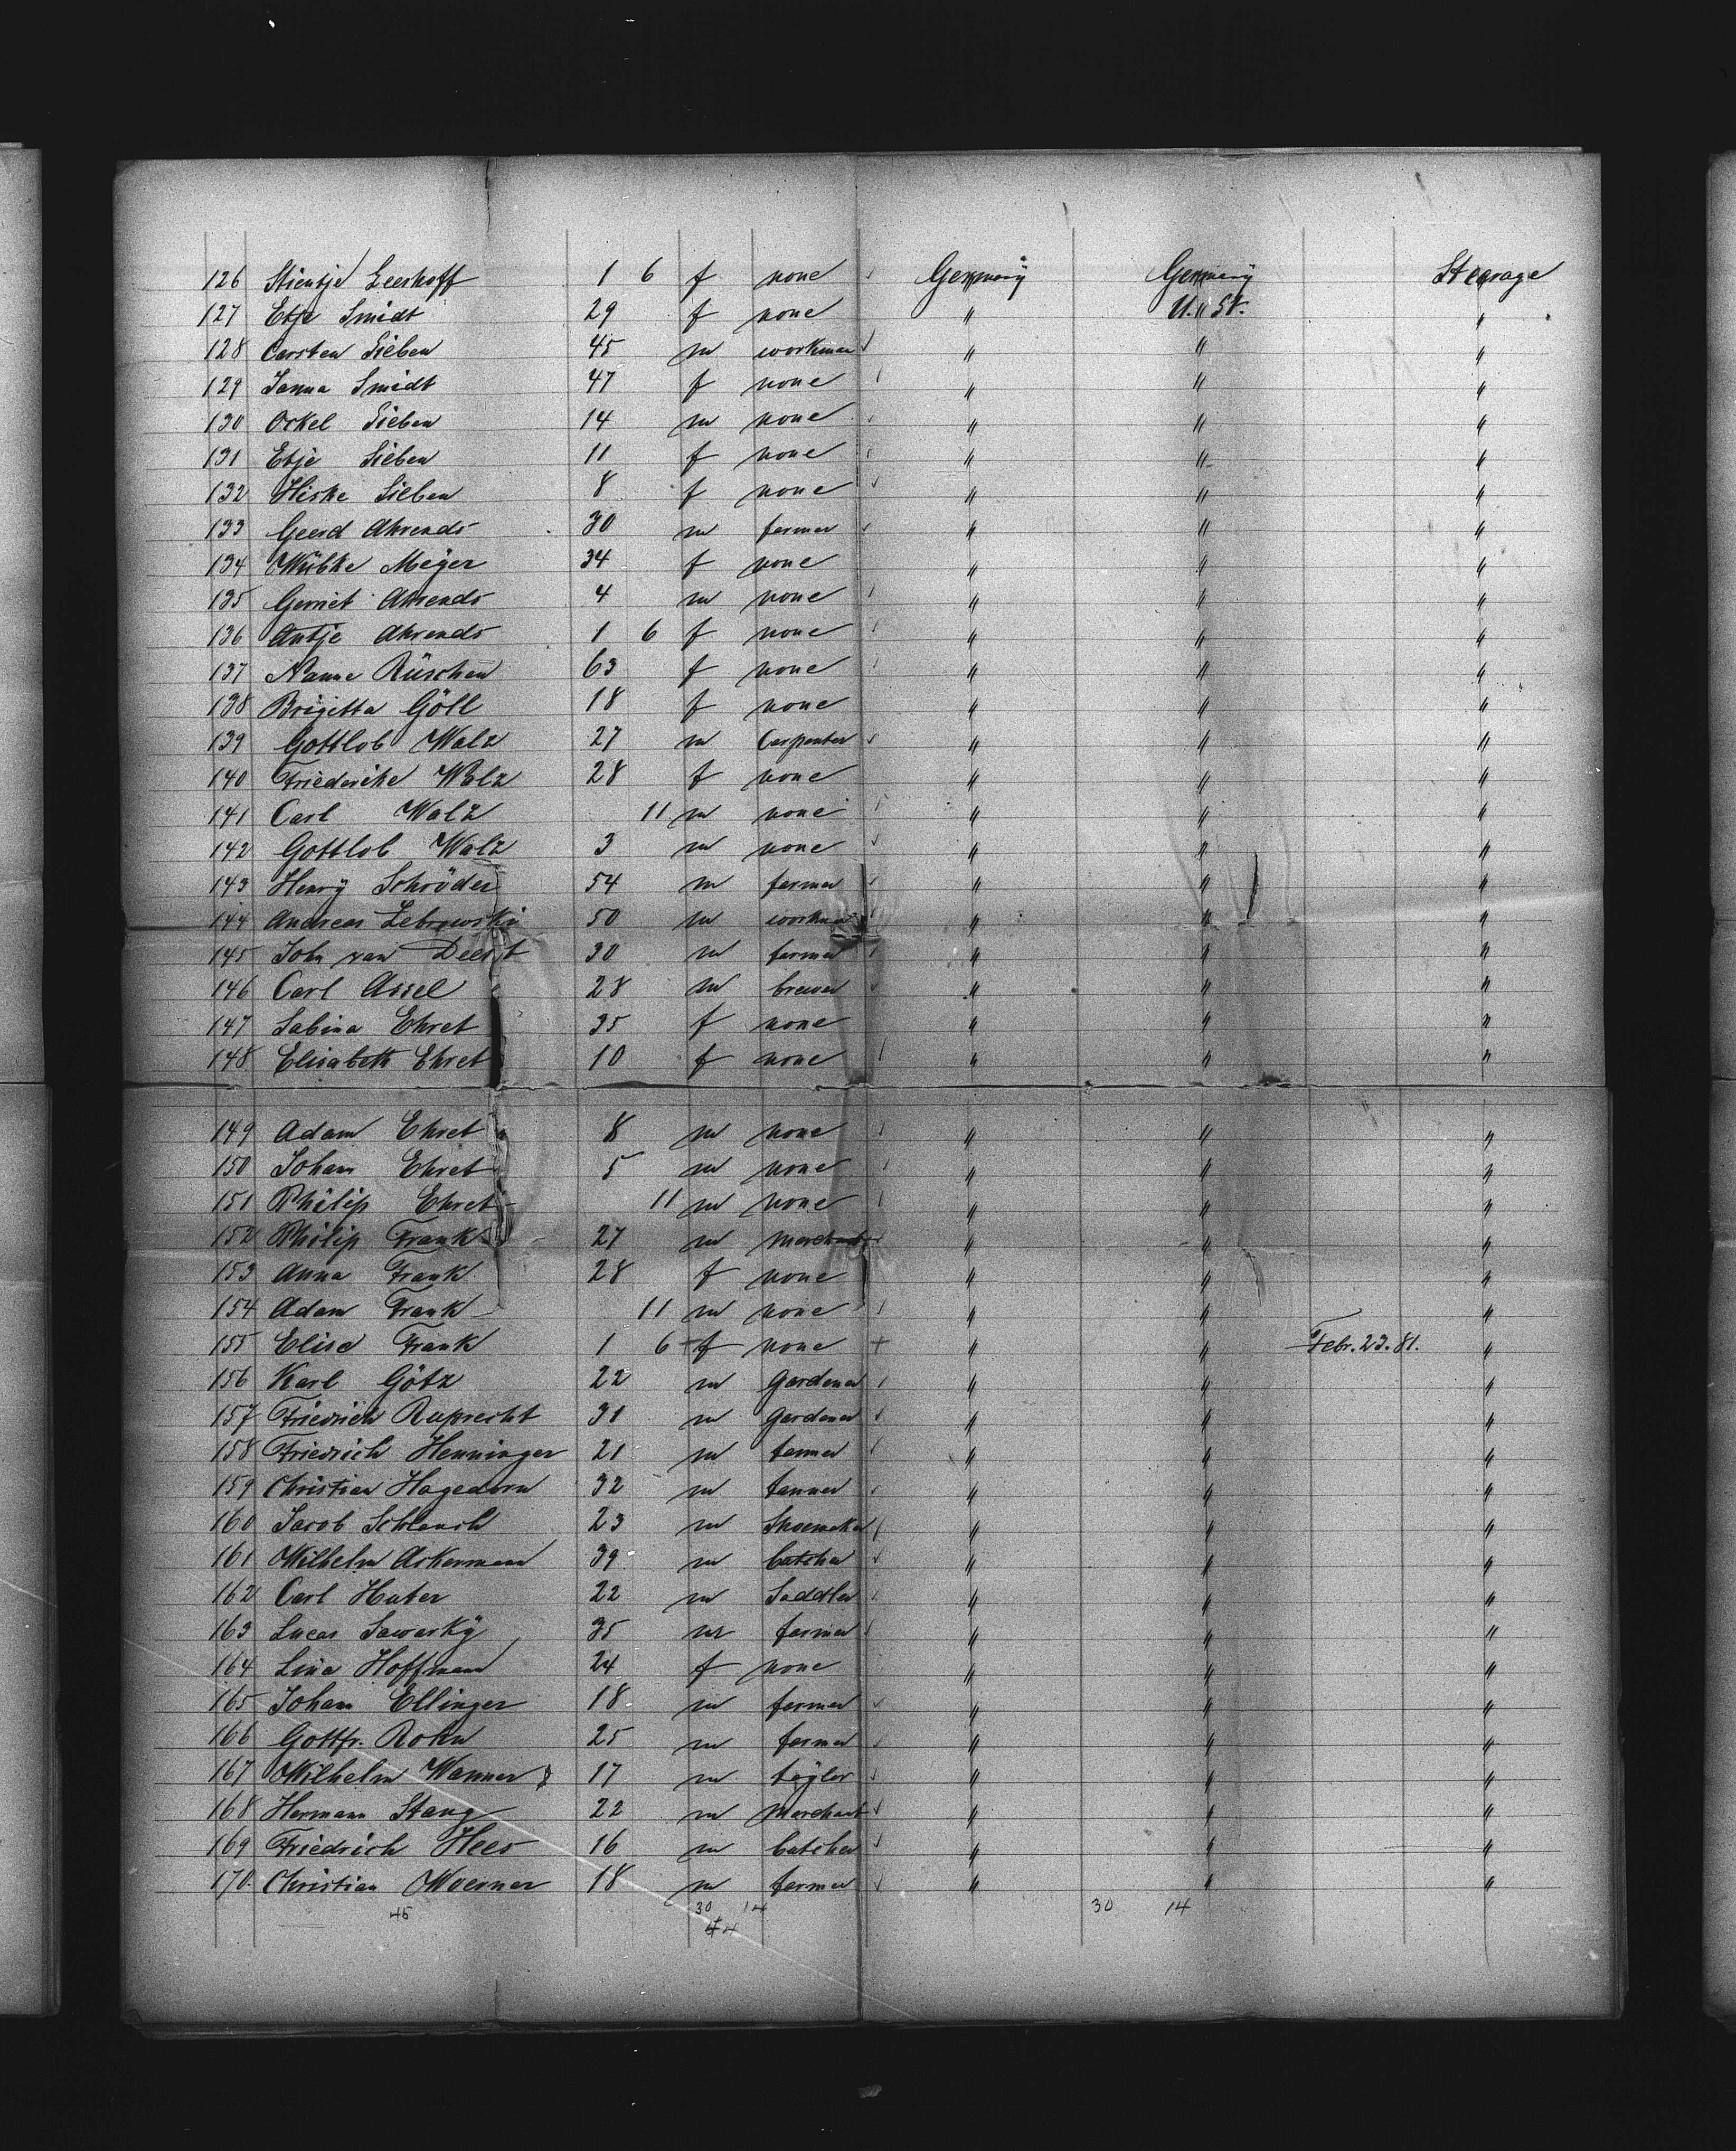 126 Stientje Leerhoff 1 6 f none Germany Germany Steerage
127 Etje Smidt 29 f none " U. St. "
128 Carsten Sieben 45 m workman " " "
129 Janna Smidt 47 f none " " "
130 Ockel Sieben 14 m none " " "
131 Etje Sieben 11 f none " " "
132 Hiske Sieben 8 f none " " "
133 Geerd Ahrends 30 m farmer " " "
134 Wübke Meÿer 34 f none " " "
135 Gerriet Ahrends 4 m none " " "
136 Antje Ahrends 1 6 f none " " "
137 Nanne Rüschen 63 f none " " "
138 Brigitta Göll 18 f none " " "
139 Gottlob Walz 27 m Carpenter " " "
140 Friederike Walz 28 f none " " "
141 Carl Walz 11 m none " " "
142 Gottlob Walz 3 m none " " "
143 Henrÿ Schröder 54 m farmer " " "
144 Andreas Zebrowski 50 m workman " " "
145 John van Deest 30 m farmer " " "
146 Carl Assel 28 m brewer " " "
147 Sabina Ehret 35 f none " " "
148 Elisabeth Ehret 10 f none " " "
149 Adam Ehret 8 m none " " "
150 Johann Ehret 5 m none " " "
151 Philip Ehret 11 m none " " "
152 Philip Frank 27 m merchant " " "
153 Anna Frank 28 f none " " "
154 Adam Frank 11 m none " " "
155 Elise Frank 1 6 + f none + " " Febr. 23. 81. "
156 Karl Götz 22 m gardener " " "
157 Friedrich Ruprecht 31 m gardener " " "
158 Friedrich Henninger 21 m farmer " " "
159 Christian Hagedorn 32 m tanner " " "
160 Jacob Schlauch 23 m Shoemaker " " "
161 Wilhelm Ackermann 39 m butcher " " "
162 Carl Huter 22 m Saddler " " "
163 Lucas Sawarkÿ 35 m farmer " " "
164 Lina Hoffmann 24 f none " " "
165 Johann Ellinger 18 m farmer " " "
166 Gottfr. Rohn 25 m farmer " " "
167 Wilhelm Wanner 17 m taÿlor " " "
168 Hermann Stang 22 m merchant " " "
169 Friedrich Hees 16 m butcher " " "
170 Christian Woerner 18 m farmer " " "
45 30 14 30 14
44